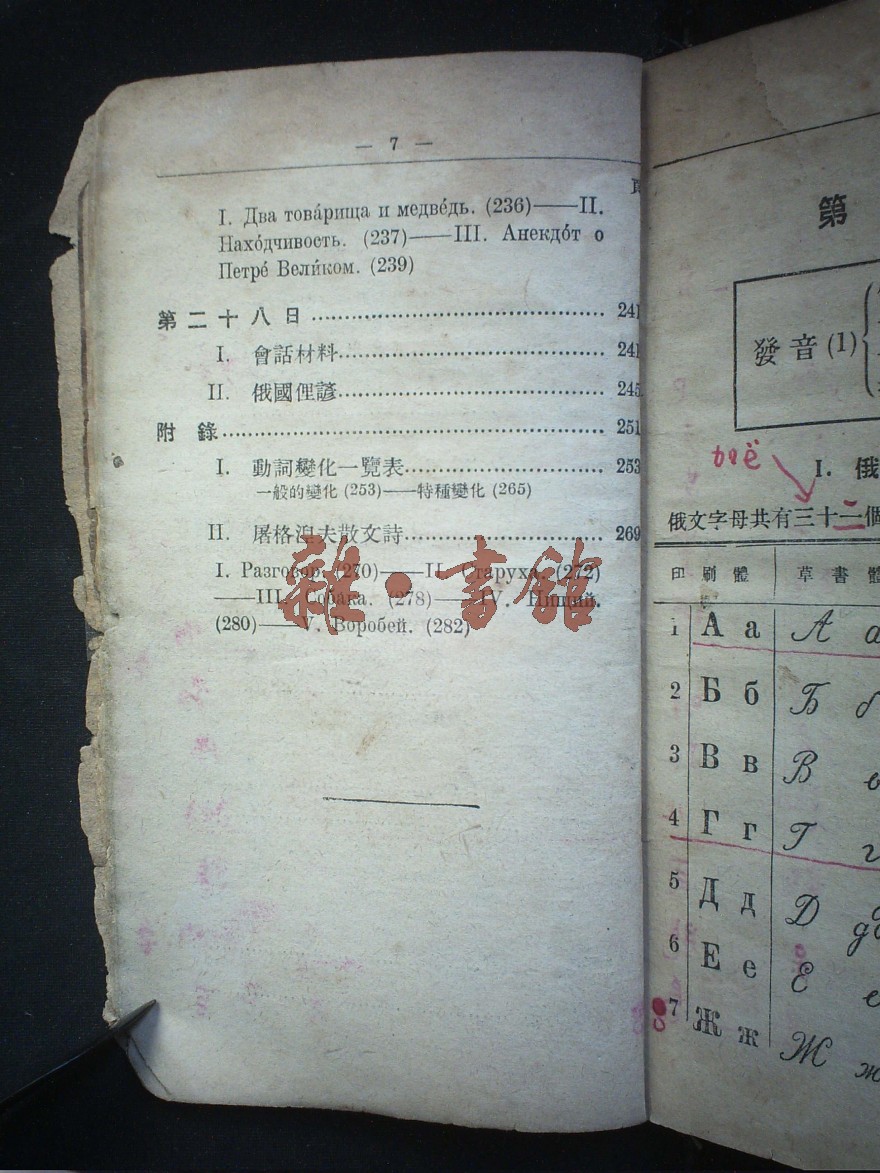 — 7 —
頁
I. Два това́рища и медве́дь. (236)——II.
Нахо́дчивость. (237)——III. Анекдо́т о
Петре́ Вели́ком. (239)
第二十八日 241
I. 會話材料 241
II. 俄國俚諺 245
附錄 251
I. 動詞變化一覽表 253
一般的變化 (253)——特種變化 (265)
II. 屠格湼夫散文詩 269
I. Разговор. (270)——II. Старуха. (272)
——III. Собака. (278)——IV. Нищий.
(280)——V. Воробей. (282)
雜·書館
第
發音(1)
加ё
I. 俄
俄文字母共有三十二個
印刷體 草書體
1 А а А а
2 Б б Б б
3 В в В в
4 Г г Г г
5 Д д Д д
6 Е е Е е
7 Ж ж Ж ж